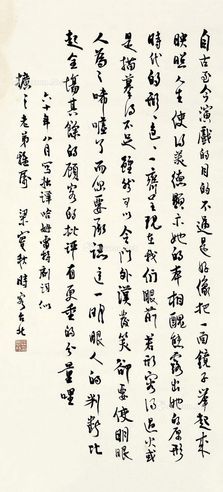 自古至今演戲的目的不過是好像把一面鏡子舉起來
映照人生使得美德顯示她的本相醜態露出她的原形
時代的形形色色一齊呈現在我們眼前若形容得過火或
是描摹得不足雖然可以令門外漢發笑卻要使明眼
人為之唏噓了而你要承認這一明眼人的判斷比
起全場其餘的顧客的批評有更重的分量哩
六十年八月寫拙譯哈姆雷特劇詞似
之老弟雅屬 梁實秋時客台北